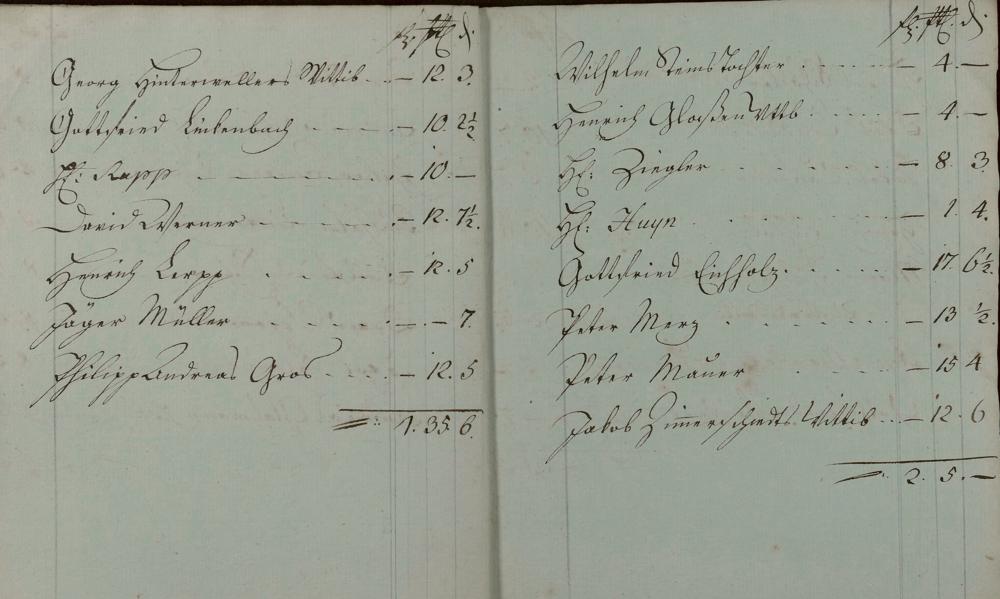 Georg Hinterwellers Wittib. . – 12. 3.
Gottfried Lückenbach – – – – 10. 2½
H: Rapp – – – – – 10. –
David Werner – – – – 12. 7½.
Henrich Lerpp . . . . – 12. 5
Jäger Müller . – . – . – – – 7.
Philipp Andreas Gros – . . . – 12. 5
1. 35. 6.
Wilhelm Steins Tochter . . . . – 4. –
Henrich Glaßen Wttb . . . . – 4. –
H: Ziegler . . . . – 8. 3.
H: Huyn . . . . – 1. 4.
Gottfried Eichholz. . . . . – 17. 6½.
Peter Merz . . . . – 13 ½.
Peter Mauer . . . . – 15 4
Jakob Zimerschiedts Wittib . . – 12. 6
2. 5. –